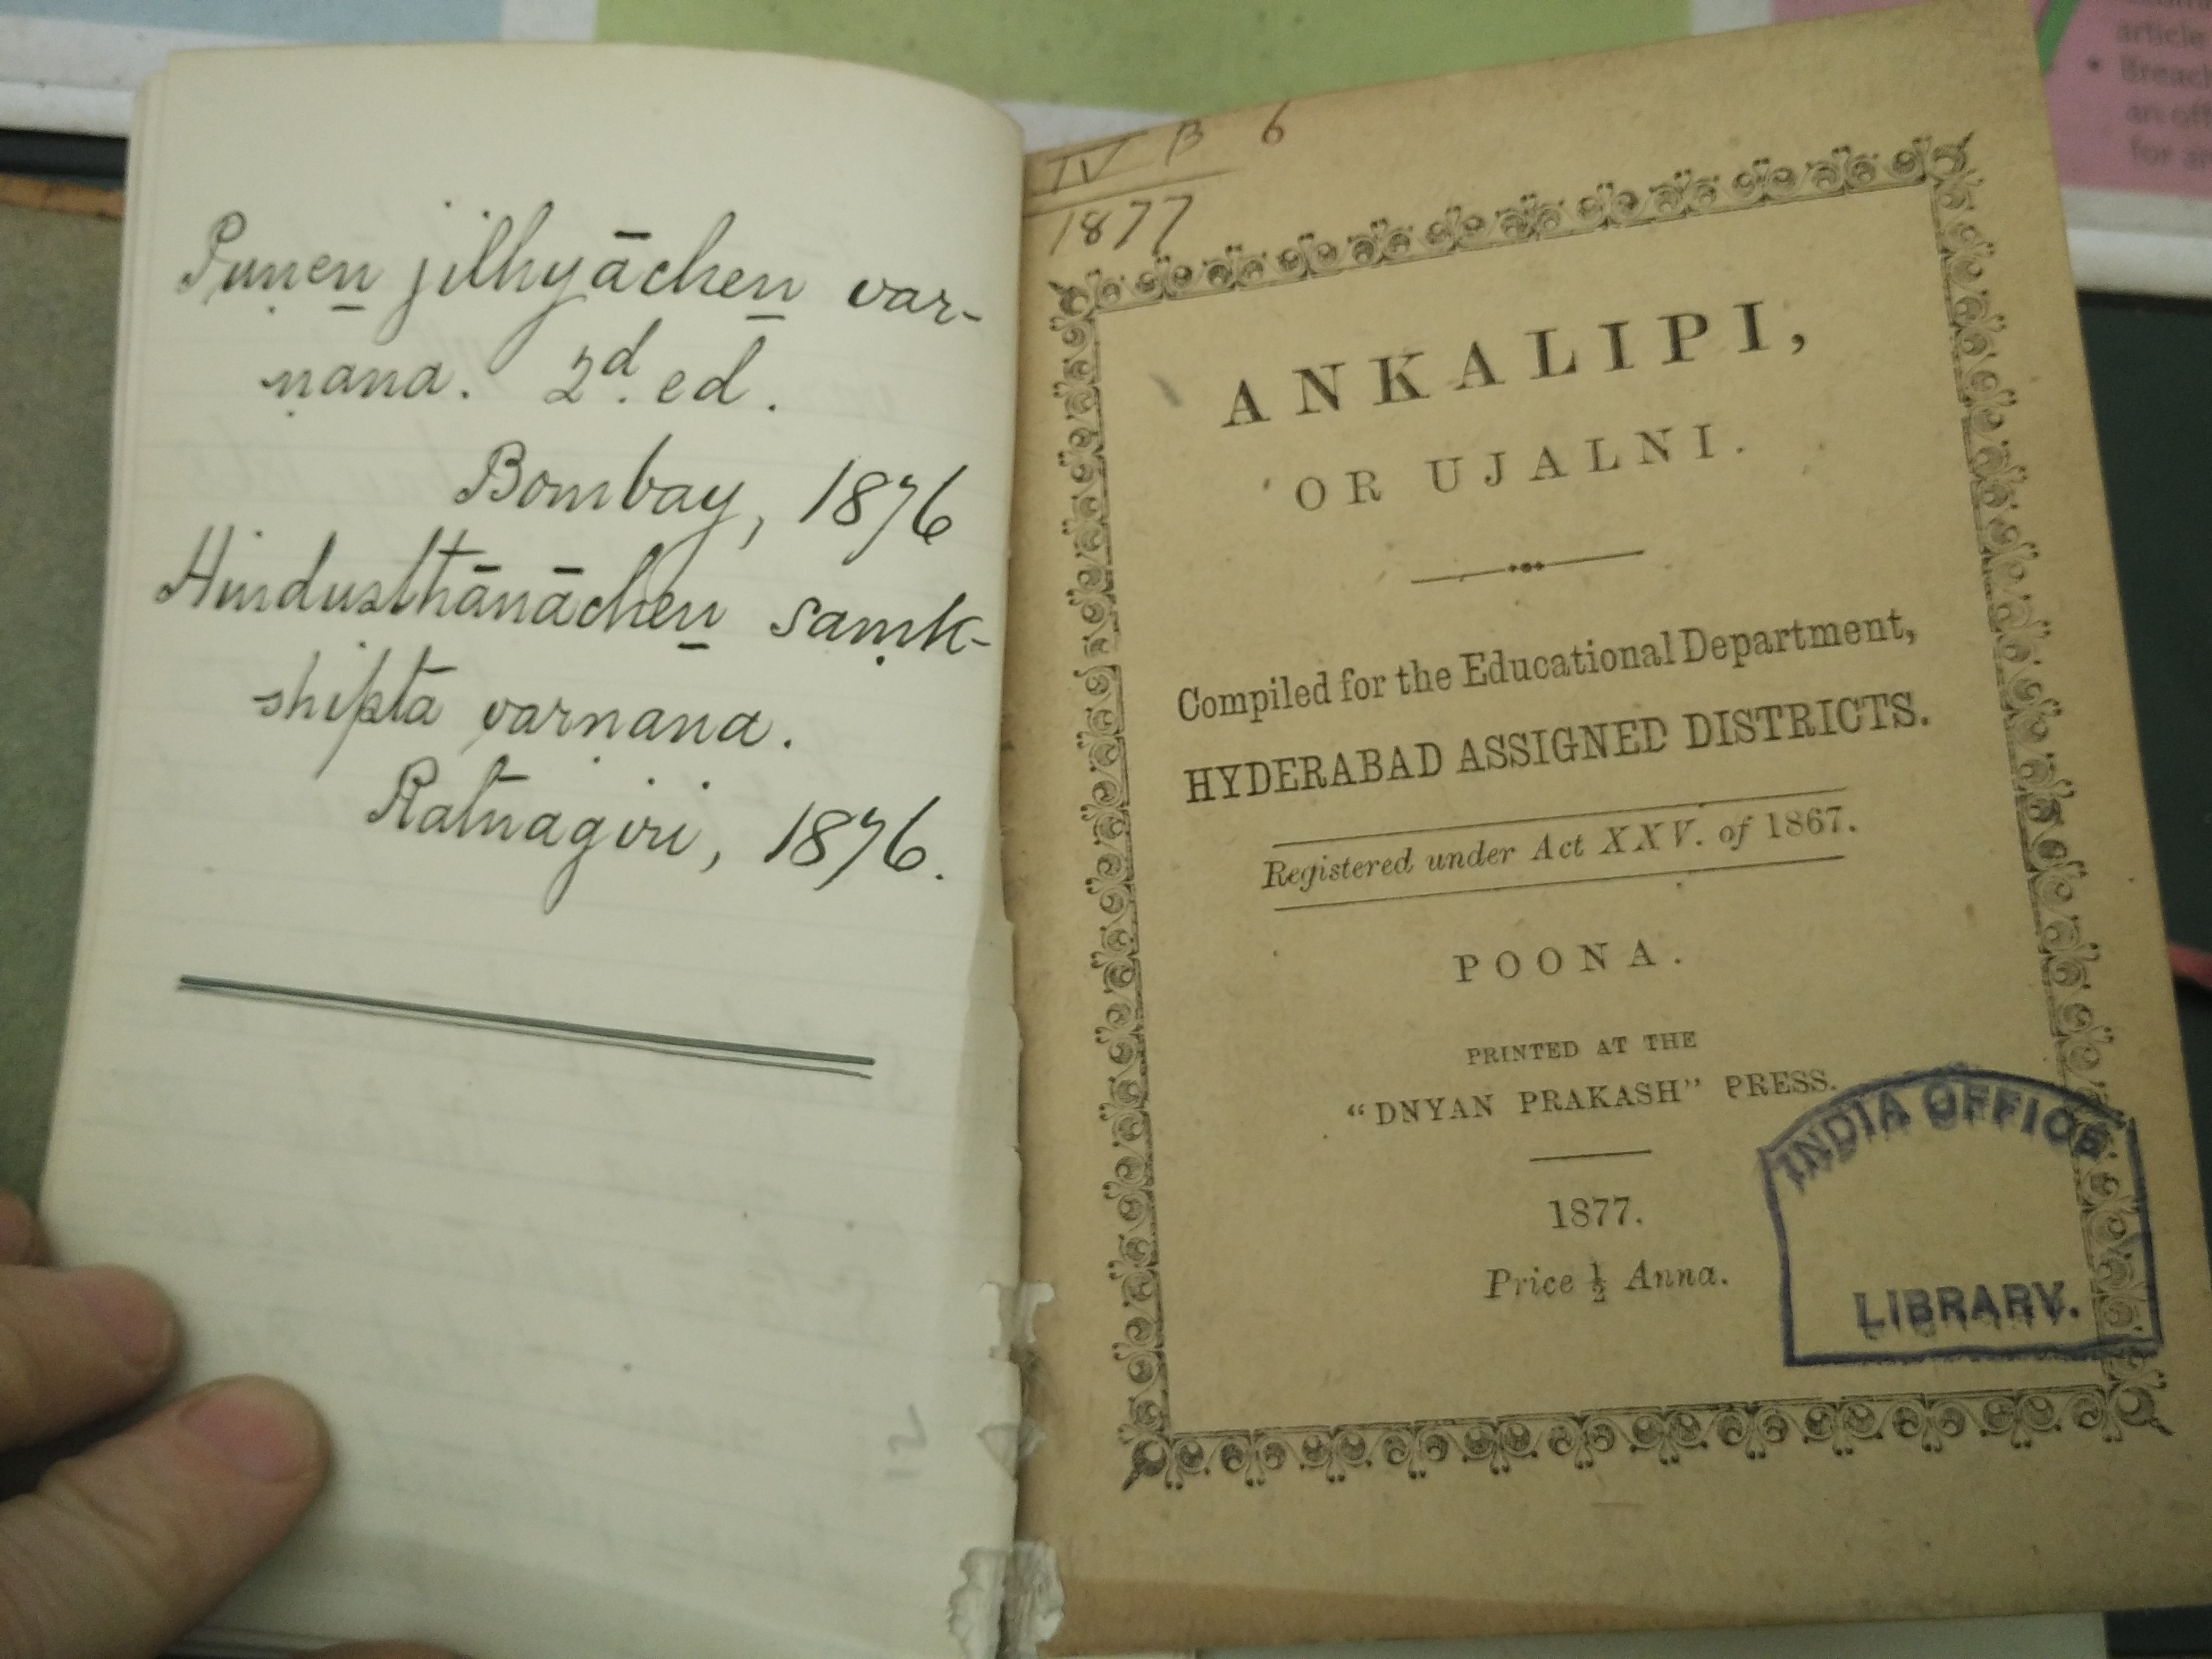 Puṇen̲ jilhyāchen̲ var-
ṇana. 2d. ed.
Bombay, 1876
Hindusthānāchen̲ saṃk-
shipta varṇana.
Ratnagiri, 1876.
IV B 6
1877
ANKALIPI,
OR UJALNI.
Compiled for the Educational Department,
HYDERABAD ASSIGNED DISTRICTS.
Registered under Act XXV. of 1867.
POONA.
PRINTED AT THE
“DNYAN PRAKASH” PRESS.
1877.
Price ½ Anna.
INDIA OFFICE
LIBRARY.
article
• Breach
an off